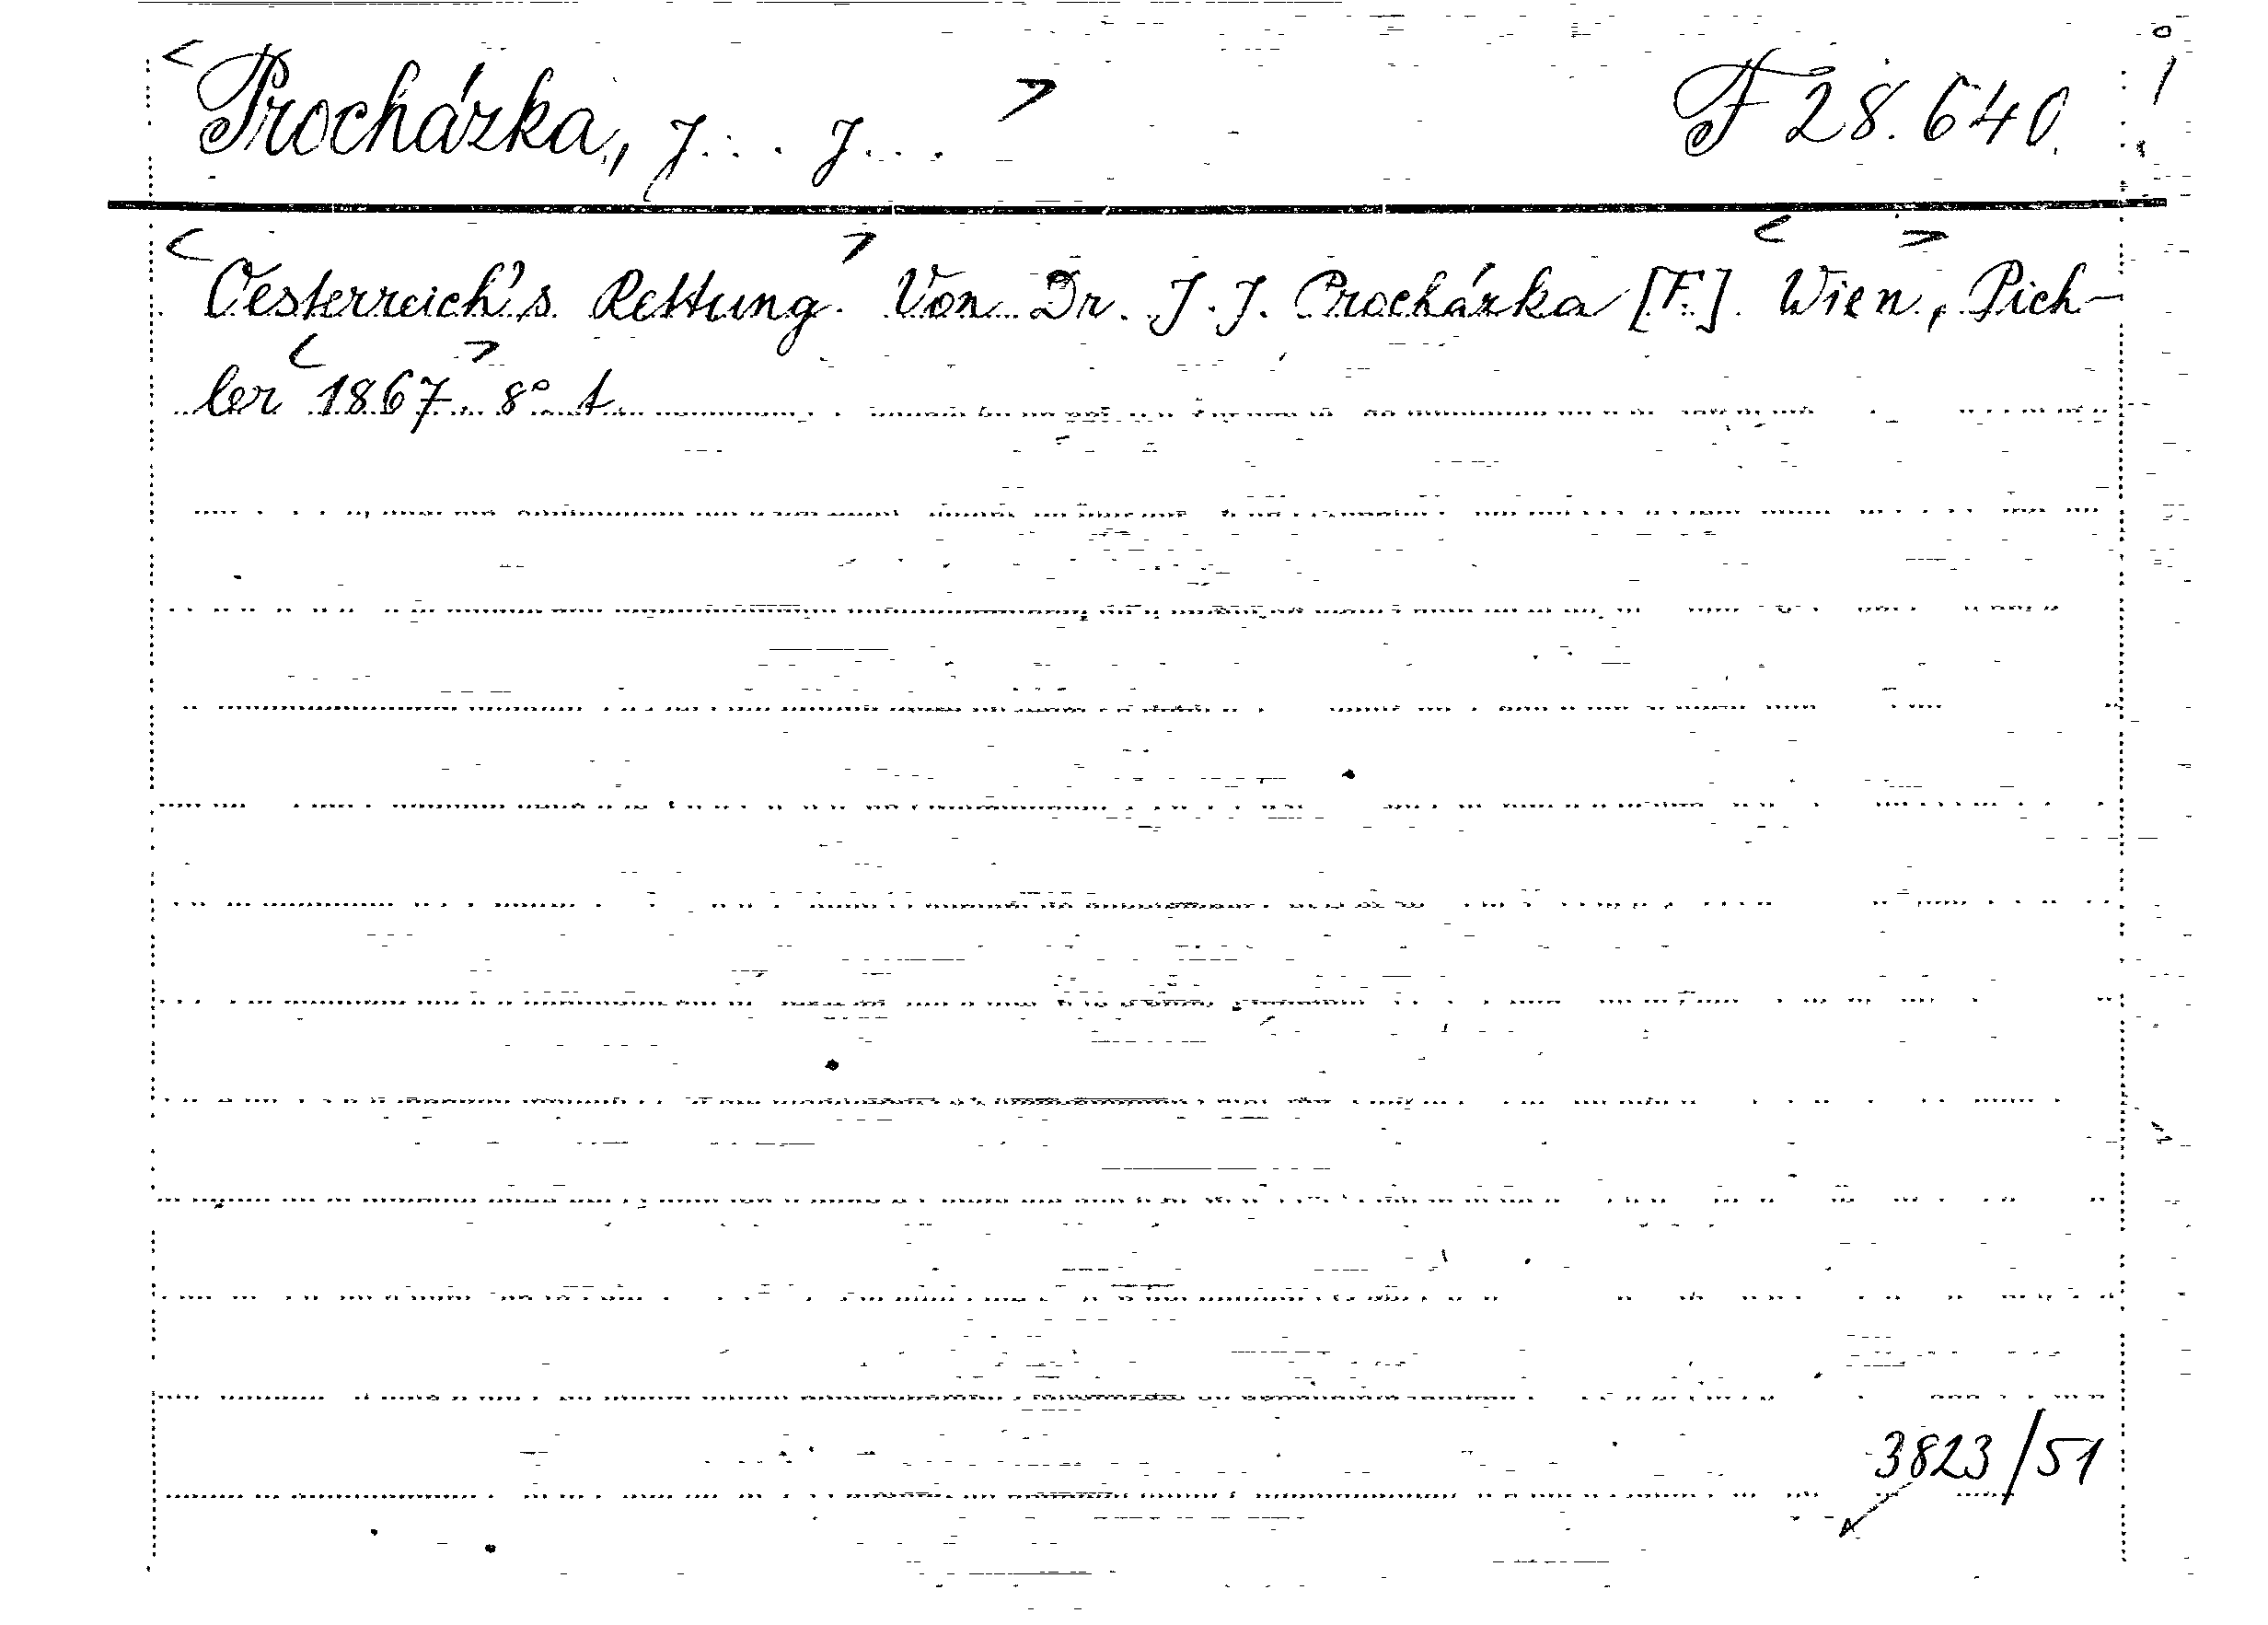 <Procházka, J... J...> F 28.640.
<Oesterreich's Rettung> Von Dr. J. J. Procházka [F.]. <Wien>, Pich-
ler <1867>. 8° t.
3823/51